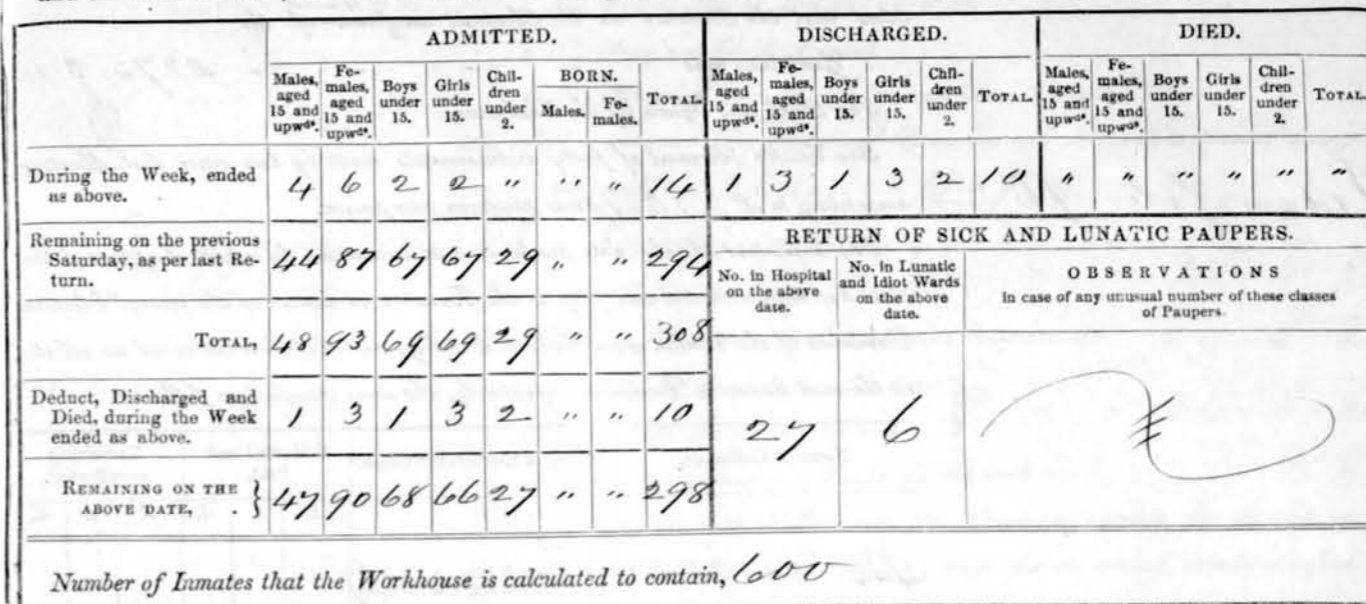 ADMITTED. DISCHARGED. DIED.
Males, aged 15 and upwds. Females, aged 15 and upwds. Boys under 15. Girls under 15. Children under 2. BORN. Males. Females. TOTAL. Males, aged 15 and upwds. Females, aged 15 and upwds. Boys under 15. Girls under 15. Children under 2. TOTAL. Males, aged 15 and upwds. Females, aged 15 and upwds. Boys under 15. Girls under 15. Children under 2. TOTAL.
During the Week, ended as above. 4 6 2 2 " " " 14 1 3 1 3 2 10 " " " " " "
Remaining on the previous Saturday, as per last Return. 44 87 67 67 29 " " 294
TOTAL, 48 93 69 69 29 " " 308
Deduct, Discharged and Died, during the Week ended as above. 1 3 1 3 2 " " 10
REMAINING ON THE ABOVE DATE, . } 47 90 68 66 27 " " 298
RETURN OF SICK AND LUNATIC PAUPERS.
No. in Hospital on the above date. No. in Lunatic and Idiot Wards on the above date. OBSERVATIONS in case of any unusual number of these classes of Paupers.
27 6
Number of Inmates that the Workhouse is calculated to contain, 600